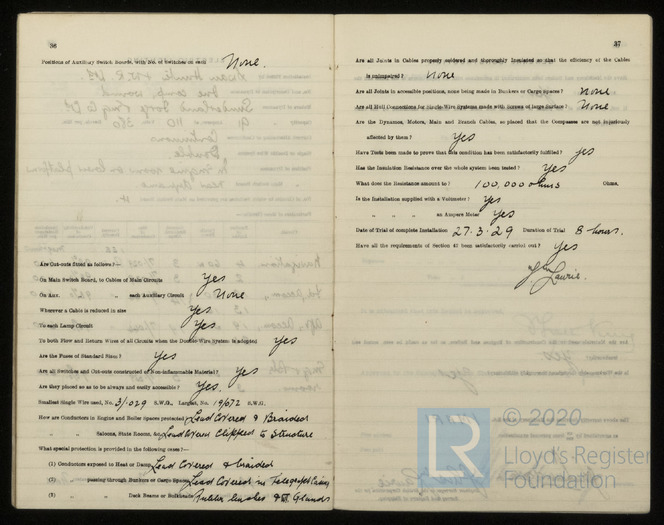 36
Positions of Auxiliary Switch Boards, with No. of Switches on each None.
Are Cut-outs fitted as follows?—
On Main Switch Board, to Cables of Main Circuits Yes
On Aux. " " each Auxiliary Circuit None
Wherever a Cable is reduced in size Yes
To each Lamp Circuit Yes
To both Flow and Return Wires of all Circuits when the Double-Wire System is adopted Yes
Are the Fuses of Standard Sizes? Yes
Are all Switches and Cut-outs constructed of Non-inflammable Material? Yes
Are they placed so as to be always and easily accessible? Yes.
Smallest Single Wire used, No. 3/029 S.W.G., Largest, No. 19/072 S.W.G.
How are Conductors in Engine and Boiler spaces protected? Lead Covered & Braided
" " Saloons, State Rooms, &c.? Lead Cover Clipped to Structure
What special protection is provided in the following cases?—
(1) Conductors exposed to Heat or Damp Lead Covered & braided
(2) " passing through Bunkers or Cargo Spaces Lead Covered in
(3) " " Deck Beams or Bulkheads & Glands
37
Are all Joints in Cables properly soldered and thoroughly insulated so that the efficiency of the Cables
is unimpaired? None
Are all Joints in accessible positions, none being made in Bunkers or Cargo Spaces? None
Are all Hull Connections for Single-Wire Systems made with Screws of large Surface? None
Are the Dynamos, Motors, Main and Branch Cables, so placed that the Compasses are not injuriously
affected by them? Yes
Have Tests been made to prove that this condition has been satisfactorily fulfilled? Yes
Has the Insulation Resistance over the whole system been tested? Yes
What does the Resistance amount to? 100,000 ohms Ohms.
Is the Installation supplied with a Voltmeter? Yes
" " " an Ampere Meter Yes
Date of Trial of complete Installation 27.3.29 Duration of Trial 8 hours.
Have all the requirements of Section 42 been satisfactorily carried out? Yes
Lawrie.
LR © 2020
Lloyd's Register
Foundation